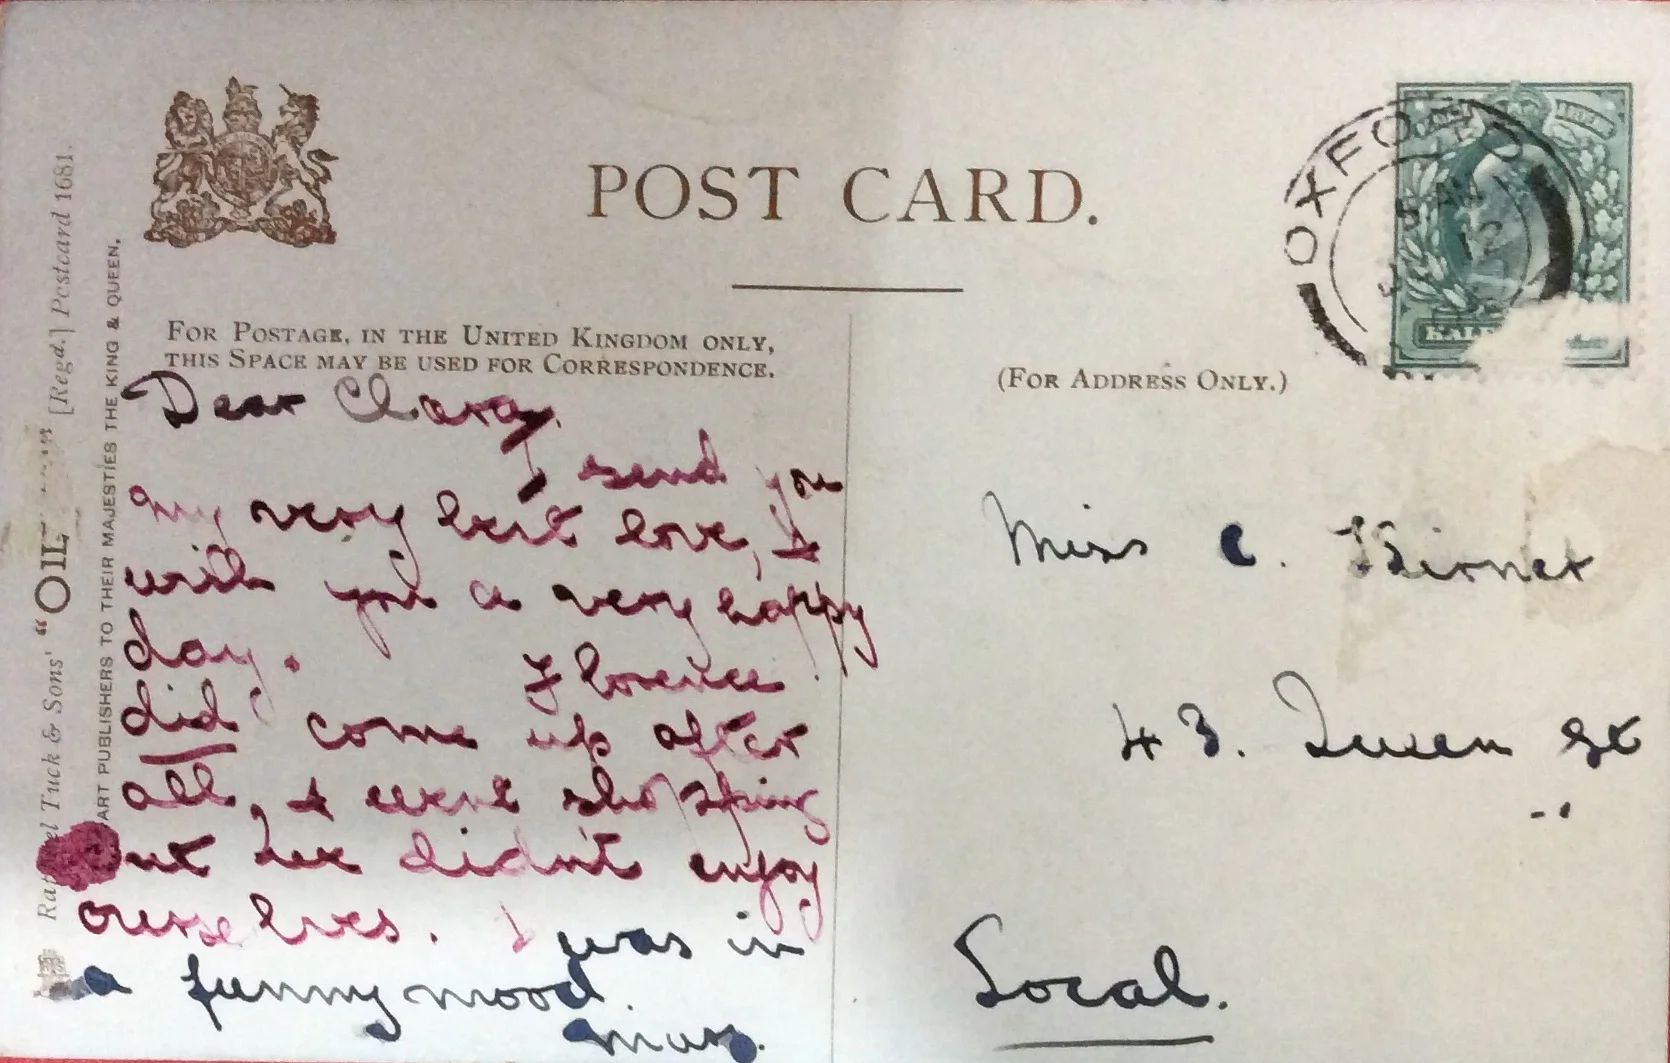 POST CARD.
FOR POSTAGE, IN THE UNITED KINGDOM ONLY,
THIS SPACE MAY BE USED FOR CORRESPONDENCE.
(FOR ADDRESS ONLY.)
Dear Clara,
I send you
my very best love, &
wish you a very happy
day. Florence
did come up after
all, & went shopping
but we didn't enjoy
ourselves. I was in
a funny mood.
May.
Miss C.
43. Queen St
Local.
OXFORD
5 AM
12
HALF
Tuck & Sons' "OIL [Regd.] Postcard 1681.
ART PUBLISHERS TO THEIR MAJESTIES THE KING & QUEEN.